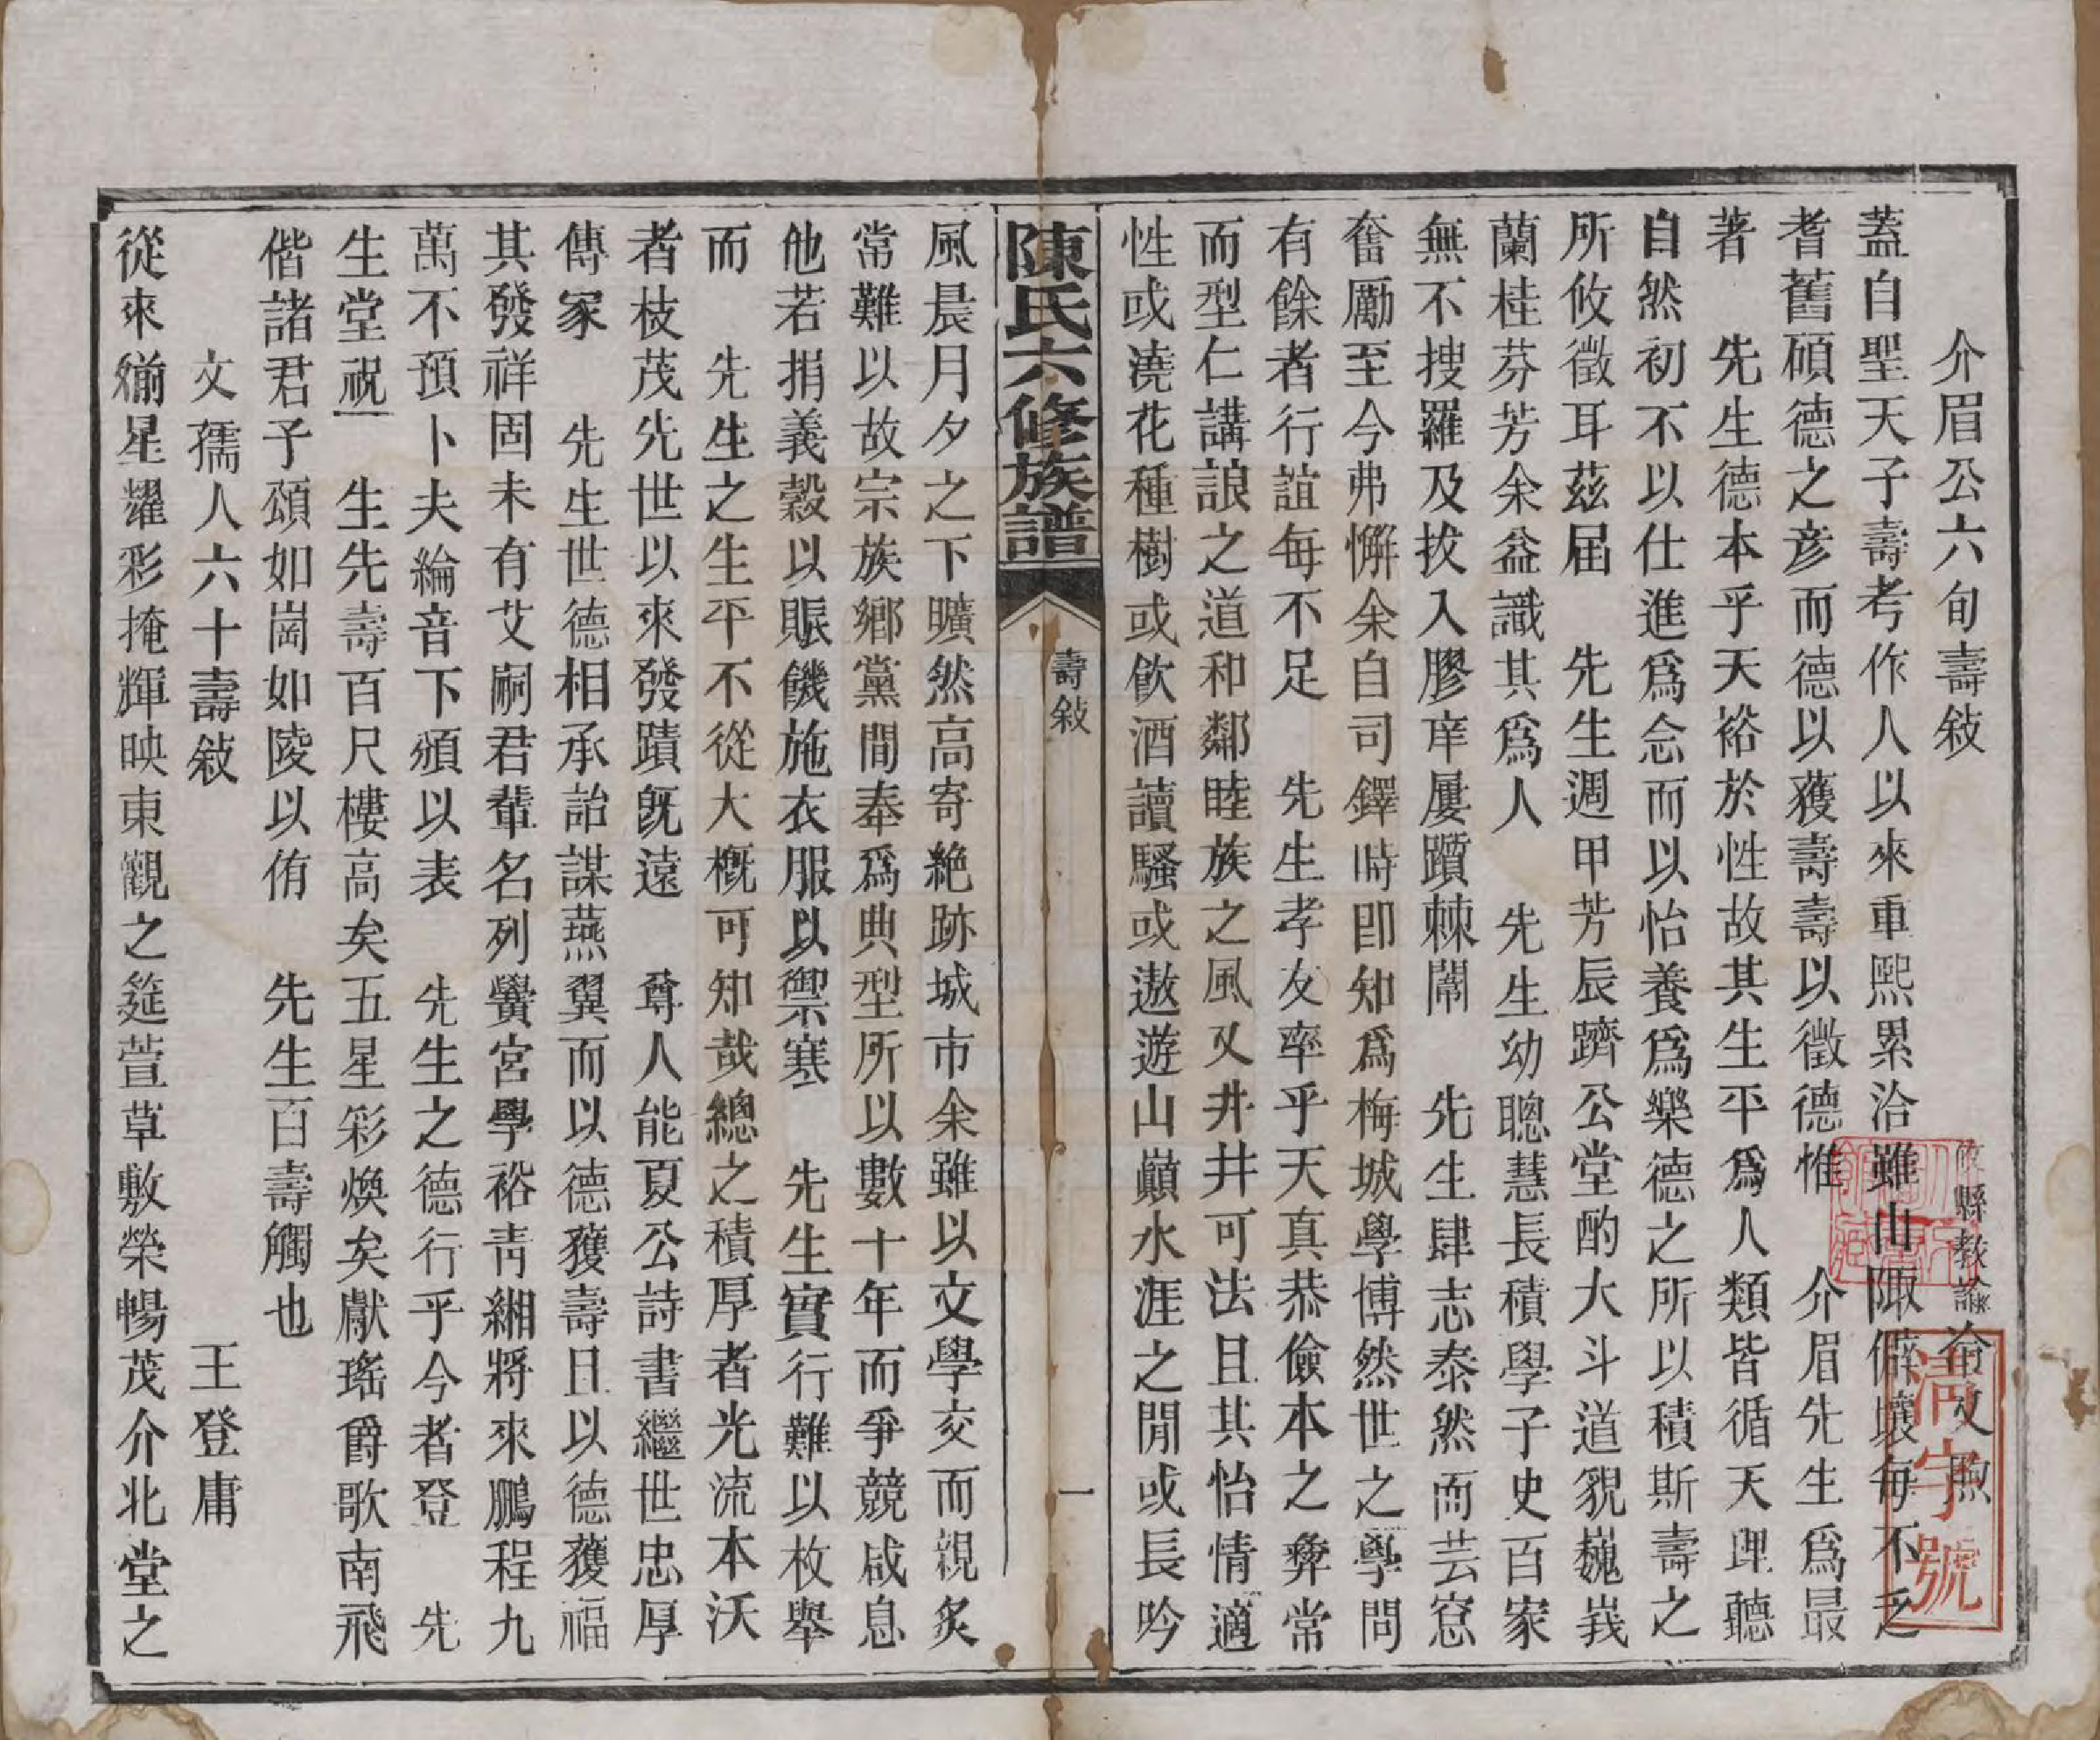 介眉公六旬壽敍 縣教諭 文
蓋自聖天子壽考作人以來重熙累洽雖山陬僻壤每不乏
耆舊碩德之彦而德以獲壽壽以徵德惟 介眉先生爲最
著 先生德本乎天裕於性故其生平爲人類皆循天理聽
自然初不以仕進爲念而以怡養爲樂德之所以積斯壽之
所攸徵耳茲届 先生週甲芳辰躋公堂酌大斗道貌巍峩
蘭桂芬芳余益識其爲人 先生幼聰慧長積學子史百家
無不搜羅及拔入膠庠屢躓棘闈 先生肆志泰然而芸窓
奮勵至今弗懈余自司鐸時卽知爲梅城學博然世之學問
有餘者行誼每不足 先生孝友率乎天真恭儉本之彝常
而型仁講誏之道和鄰睦族之風又井井可法且其怡情適
性或澆花種樹或飲酒讀騷或遨遊山巓水涯之閒或長吟
陳氏六修族譜 壽敍 一
風晨月夕之下曠然高寄絶跡城市余雖以文學交而親炙
常難以故宗族鄉黨間奉爲典型所以數十年而爭競咸息
他若捐義穀以賑饑施衣服以禦寒 先生實行難以枚舉
而 先生之生平不從大槪可知哉總之積厚者光流本沃
者枝茂先世以來發蹟旣遠 尊人能夏公詩書繼世忠厚
傳家 先生世德相承詒謀燕翼而以德獲壽且以德獲福
其發祥固未有艾嗣君輩名列黌宮學裕靑緗將來鵬程九
萬不預卜夫綸音下頒以表 先生之德行乎今者登 先
生堂祝 生先壽百尺樓高矣五星彩煥矣獻瑤爵歌南飛
偕諸君子頌如崗如陵以侑 先生百壽觴也
文孺人六十壽敍 王登庸
從來媊星耀彩掩輝映東觀之筵萱草敷榮暢茂介北堂之
淸字號